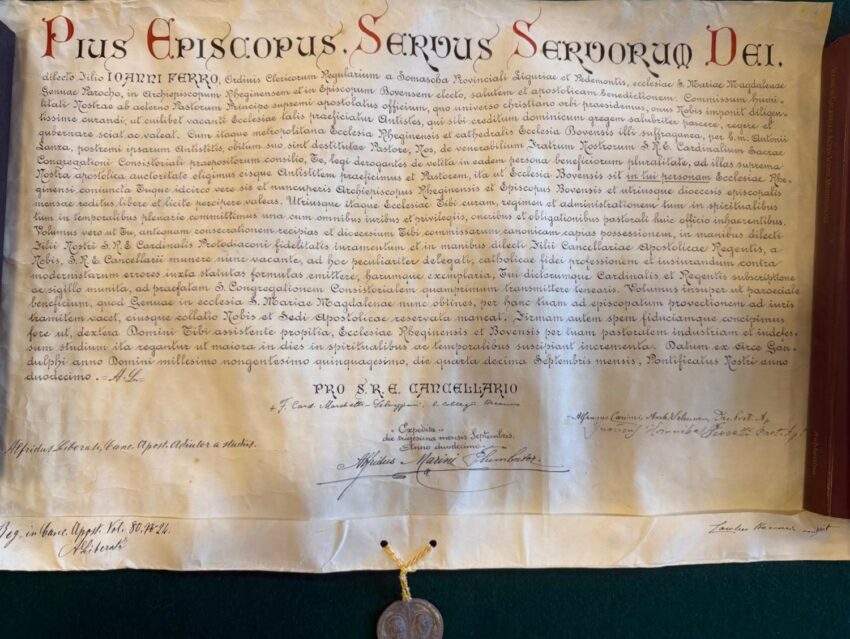 Pius Episcopus, Servus Servorum Dei,
dilecto Filio IOANNI FERRO, Ordinis Clericorum Regularium a Somascha Provinciali Liguriae et Pedemontis, ecclesiae S. Mariae Magdalenae
Genuae Parocho, in Archiepiscopum Rheginensem et in Episcopum Bovensem electo, salutem et apostolicam benedictionem. Commissum humi-
litati Nostrae ab aeterno Pastorum Principe supremi apostolatus officium, quo universo christiano orbi praesidemus, onus Nobis imponit diligen-
tissime curandi, ut cuilibet vacanti Ecclesiae talis praeficiatur Antistes, qui sibi creditum dominicum gregem salubriter pascere, regere et
gubernare sciat ac valeat. Cum itaque metropolitana Ecclesia Rheginensis et cathedralis Ecclesia Bovensis illi suffraganea, per b. m. Antonii
Lanza, postremi ipsarum Antistitis, obitum suo sint destitutae Pastore, Nos, de venerabilium Fratrum Nostrorum S.R.E. Cardinalium Sacrae
Congregationi Consistoriali praepositorum consilio, Te, legi derogantes de vetita in eadem persona beneficiorum pluralitate, ad illas suprema
Nostra apostolica auctoritate eligimus eisque Antistitem praeficimus et Pastorem, ita ut Ecclesia Bovensis sit in tui personam Ecclesiae Rhe-
ginensi coniuncta Tuque idcirco vere sis et nuncuperis Archiepiscopus Rheginensis et Episcopus Bovensis et utriusque dioecesis episcopalis
mensae reditus libere et licite percipere valeas. Utriusque itaque Ecclesiae Tibi curam, regimen et administrationem tum in spiritualibus
tum in temporalibus plenarie committimus una cum omnibus iuribus et privilegiis, oneribus et obligationibus pastorali huic officio inhaerentibus.
Volumus vero ut Tu, antequam consecrationem recipias et dioecesium Tibi commissarum canonicam capias possessionem, in manibus dilecti
Filii Nostri S.R.E. Cardinalis Protodiaconi fidelitatis iuramentum et in manibus dilecti Filii Cancellariae Apostolicae Regentis, a
Nobis, S.R.E. Cancellarii munere nunc vacante, ad hoc peculiariter delegati, catholicae fidei professionem et iusiurandum contra
modernistarum errores iuxta statutas formulas emittere, harumque exemplaria, Tui dictorumque Cardinalis et Regentis subscriptione
ac sigillo munita, ad praefatam S. Congregationem Consistorialem quamprimum transmittere tenearis. Volumus insuper ut paroeciale
beneficium, quod Genuae in ecclesia S. Mariae Magdalenae nunc obtines, per hanc tuam ad episcopatum provectionem ad iuris
tramitem vacet, eiusque collatio Nobis et Sedi Apostolicae reservata maneat. Firmam autem spem fiduciamque concipimus
fore ut, dextera Domini Tibi assistente propitia, Ecclesiae Rheginensis et Bovensis per tuam pastoralem industriam et indefes-
sum studium ita regantur ut maiora in dies in spiritualibus ac temporalibus suscipiant incrementa. Datum ex Arce Gan-
dulphi anno Domini millesimo nongentesimo quinquagesimo, die quarta decima Septembris mensis, Pontificatus Nostri anno
duodecimo. - A. L.
PRO S.R.E. CANCELLARIO
+ F. Card. Marchetti-Selvaggiani,
Alfonsus Carinci
Expedita
die trigesima mensis Septembris.
Anno duodecimo
Alfridus Liberati, Canc. Apost. Adiutor a studiis.
Alfridus Marini Plumbator
Reg. in Canc. Apost. Vol. 80. N° 24.
A. Liberati